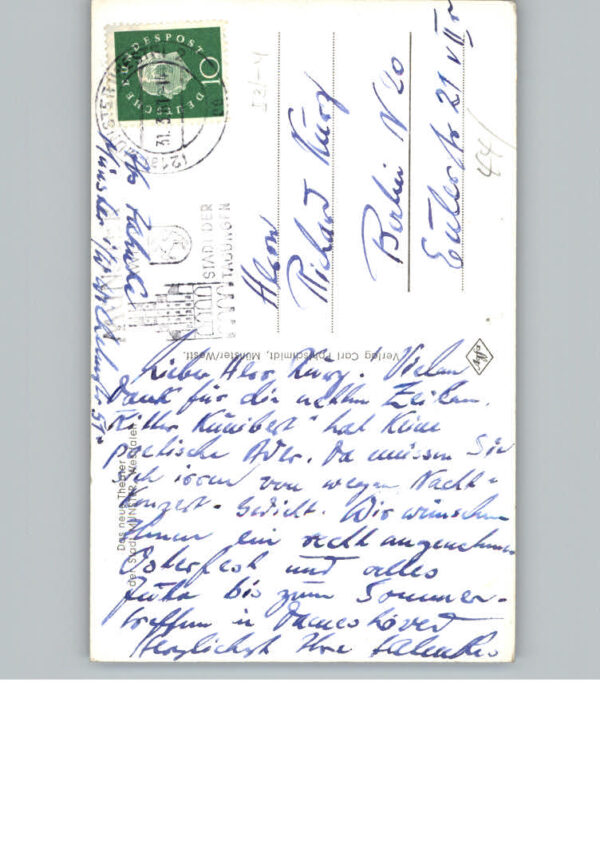 Lieber Herr Kurz. Vielen
Dank für die netten Zeilen.
Ritter Kunibert" hat keine
poetische Ader. Da müssen Sie
sich irren von wegen Nacht-
Konzert-Gedicht. Wir wünschen
Ihnen ein recht angenehmes
Osterfest und alles
Gute bis zum Sommer-
treffen in Dameshöved
Herzlichst Ihre
Herrn
Richard Kurz
Berlin N 20
Eulerstr 21 VII r
44/
Abs
Münster i/W
DEUTSCHE BUNDESPOST
10
31.3.61
STADT DER
TAGUNGEN
Verlag Carl Pohlschmidt, Münster/Westf.
Das neue Theater
der Stadt MÜNSTER, Westfalen